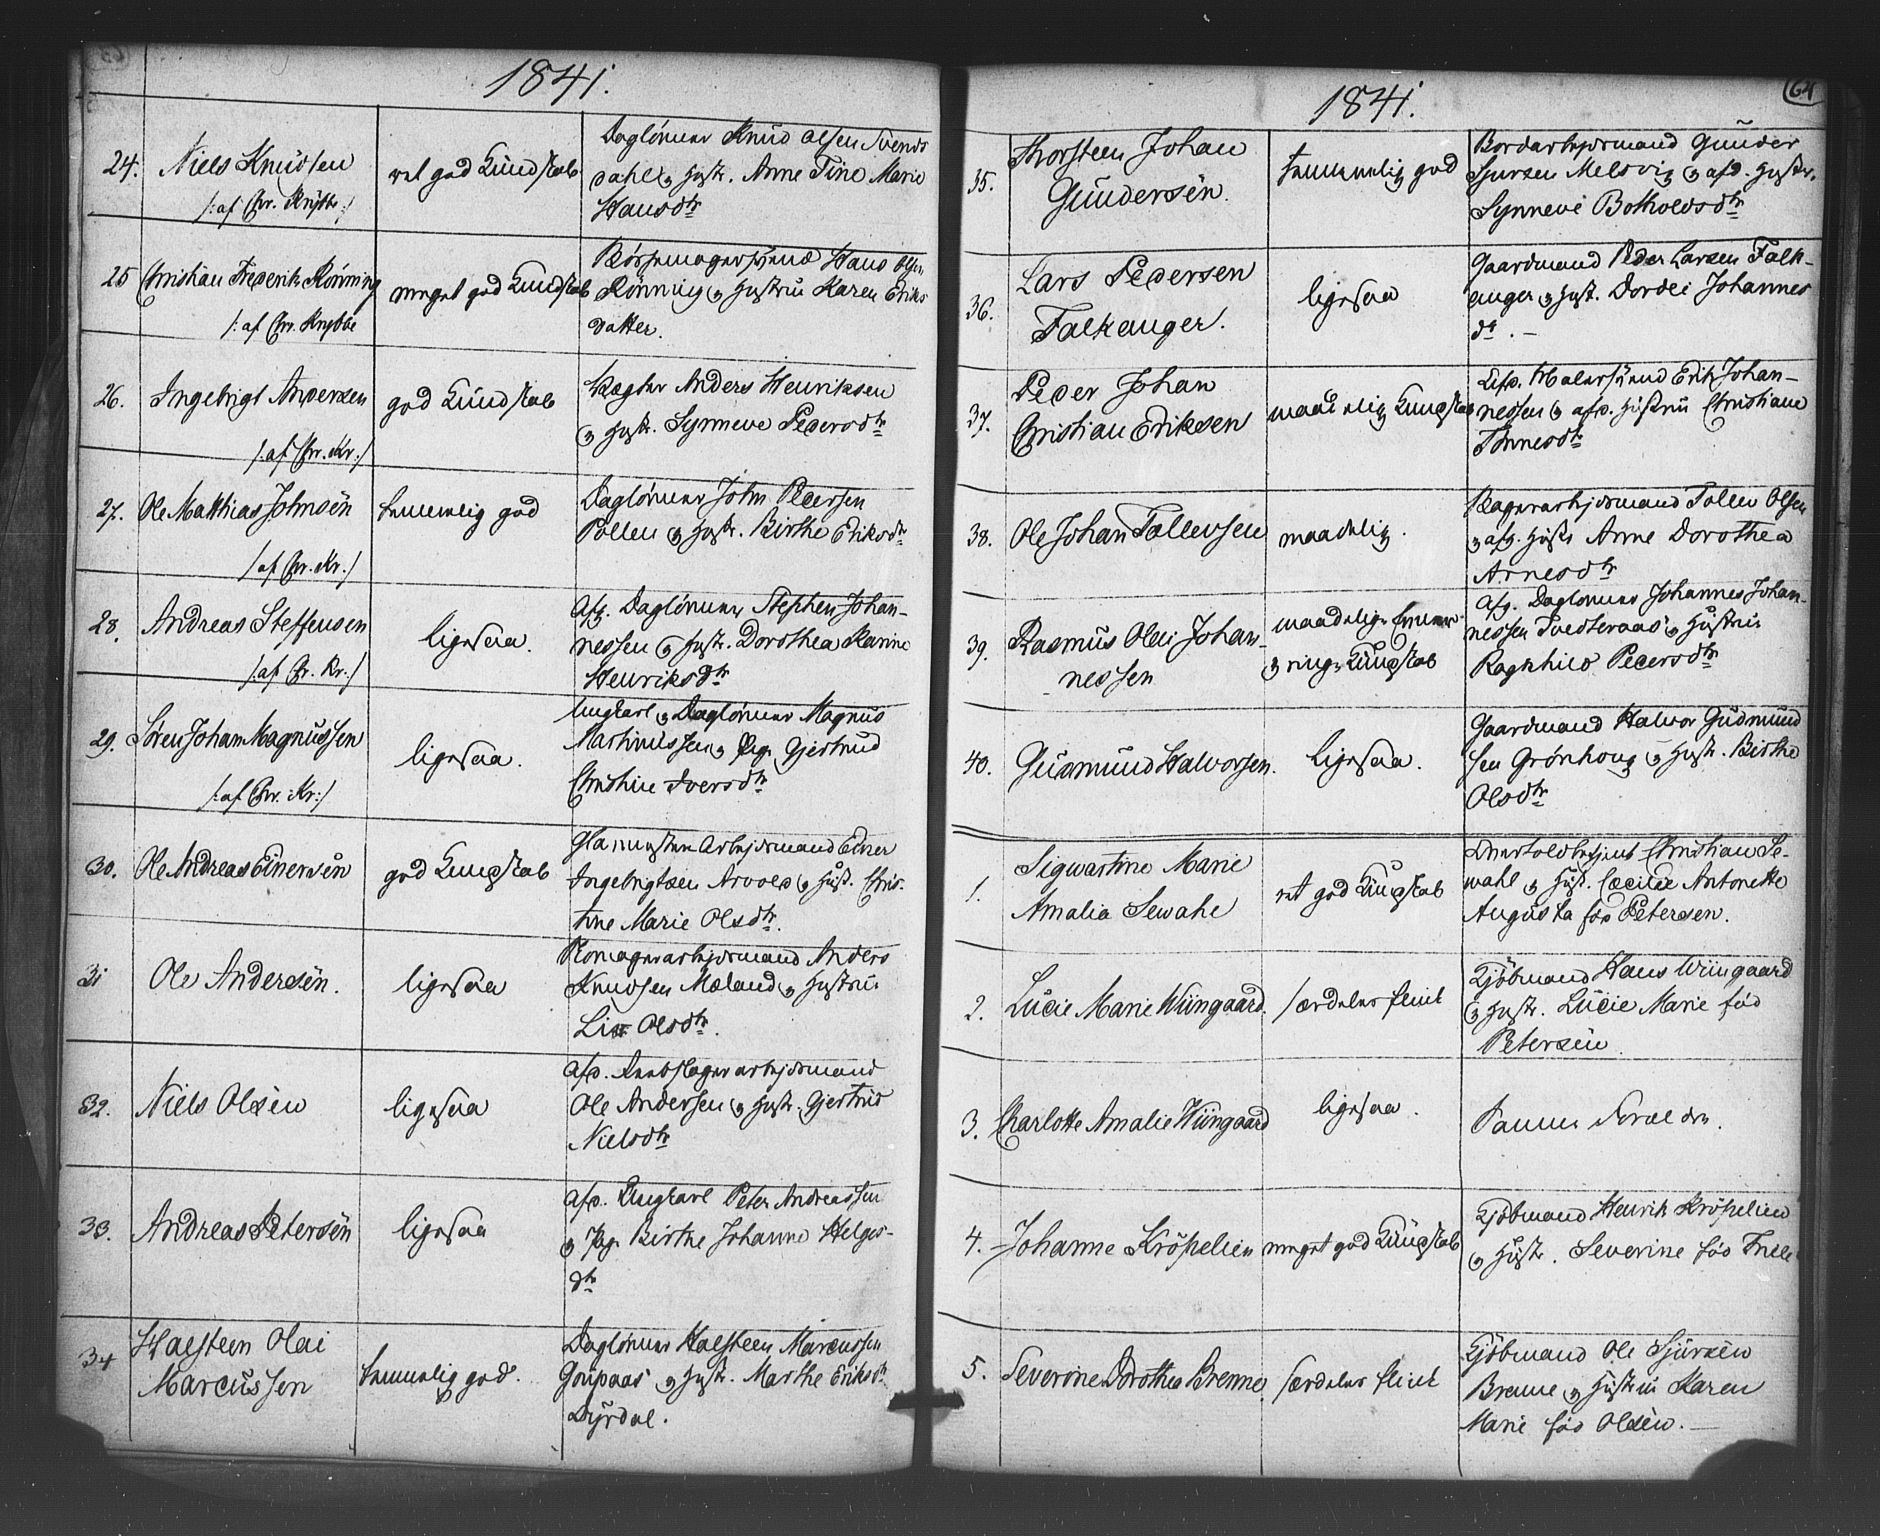 1841.
24.
Niels Knudsen
/: af Chr. Krybb :/
ret god Kundskab
Daglönner Knud Olsen Svends
dahl & Hustr. Anne Tine Marie
Hansdtr
25
Christian Frederik Rönning
/: af Chr. Krybbe
meget god Kundskab
Bössemagersvend Hans Olsen
Rönning & Hustru Karen Eriks
datter.
26.
Ingebrigt Andersen
/: af Chr. Kr :/
god Kundskab
Vægter Anders Henriksen
& Hustr. Synneve Pedersdtr
27.
Ole Matthias Johnsen
/ af Chr. Kr. /
temmelig god
Daglönner John Pedersen
Pollen & Hustr. Birthe Eriksdtr
28.
Andreas Steffensen
/: af Chr. Kr. /
ligesaa.
Afg. Daglönner Stephen Johan-
nessen & Hustr. Dorothea Karine
Henriksdtr
29.
Sören Johan Magnussen
/: af Chr. Kr :/
ligesaa.
Ungkarl & Daglönner Magnus
Martinussen & Pige Gjertrud
Christine Iversdtr
30.
Ole Andreas Einersen
god Kundskab
Arbejdsmand Einer
Ingebrigtsen Arvola & Hust. Chris-
tine Marie Olsdtr.
31
Ole Andersen.
ligesaa
arbejdsmand Anders
Knudsen Mæland & Hustrue
Olsdtr.
32.
Niels Olsen
ligesaa
Afd. arbejdsmand
Ole Andersen & Hustr. Gjertrud
Nielsdtr
33.
Andreas Petersen
ligesaa
Afd. Ungkarl Peter Andreassen
& Pige Birthe Johanne Helges-
dtr
34
Halsteen Olai
Marcussen
temmelig god.
Daglönner Halsteen Marcussen
& Hustr. Marthe Eriksdtr
Dyrdal.
64
1841.
35.
Thorsteen Johan
Gundersen.
temmelig god
Bordarbejdsmand Gunder
Sjursen Melsvig & afd. Hustr.
Synnevé Botholvsdtr
36.
Lars Pedersen
Falkanger.
ligesaa
Gaardmand Peder Larsen Falk-
anger & Hust. Dordei Johannes
dr. -
37.
Peder Johan
Christian Eriksen
maadelig Kundskab
Afd. Malersvend Erik Johan-
nessen & afd. Hustru Christiane
Tönnesdtr
38.
Ole Johan Tollevsen
maadelig.
Bagerarbejdsmand Tollev Olsen
& afg. Hustr Anne Dorothea
Arnesdtr
39.
Rasmus Olai Johan-
nessen
maadelige Evner
& ringe Kundskab
Afg. Daglönner Johannes Johan-
nessen Tvedteraas & Hustrue
Ragnhild Pedersdtr
40.
Gudmund Halvorsen.
ligesaa.
Gaardmand Halvor Gudmund
sen Grönhoug & Hustr. Birthe
Olsdtr
1.
Sigwartine Marie
Amalia Sewahl
ret god Kundskab
Overtoldbetjent Christian Se-
wahl & Hust. Cæcilie Antonette
Augusta fød Petersen.
2.
Lucie Marie Wiingaard.
særdeles fliel
Kjöbmand Hans Wiingaard
& Hustr. Lucie Marie fød
Petersen.
3.
Charlotte Amalie Wiingaard
ligesaa.
Samme Foræl dre.
4.
Johanne Kröpelien
meget god Kundskab
Kjöbmand Henrik Kröpelien
& Hustr. Severine fød Friele
5.
Severine Dorothea Brenne
særdeles
Kjöbmand Ole Sjursen
Brenne & Hustrue Karen
Marie fød Olsen. -